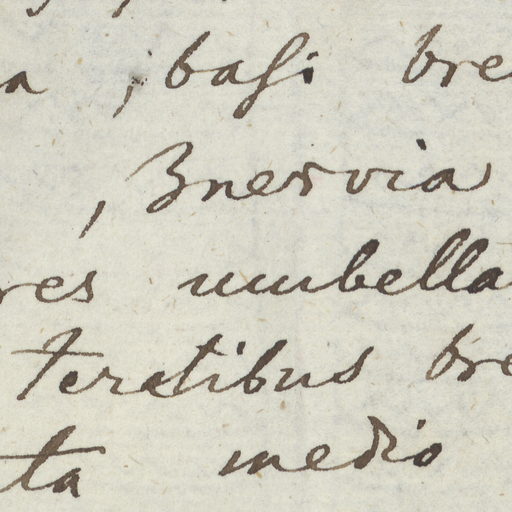 a , basi bre
, 3nervia
res umbella
teretibus bre
ta medio